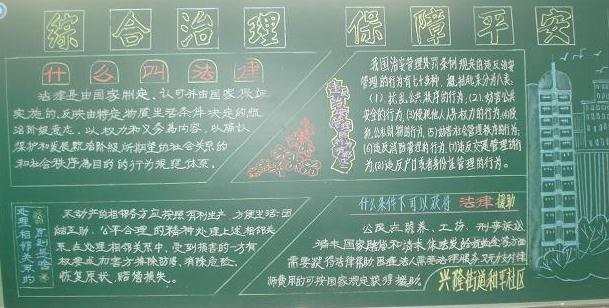 综合治理 保障平安
什么叫法律
法律是由国家制定、认可并由国家保证
实施的,反映由特定物质生活条件决定的统
治阶级意志,以权力和义务为内容,以确认
保护和发展统治阶级所期望的社会关系的
和社会秩序为目的的行为规范体系。
我国治安管理处罚条例规定的违反治安
管理的行为有七十五种,概括起来分为八类。
(1)扰乱公共秩序的行为,(2)妨害公共
安全的行为,(3)侵犯他人人身权力的行为,(4)侵
犯公私财物的行为,(5)妨害社会管理秩序的行为,
(6)违反消防管理的行为,(7)违反交通管理的行
为,(8)违反户口或者身份证管理的行为。
处理相邻关系的
原则是啥
不动产的相邻各方应按照有利生产、方便生活、团
结互助、公平合理的精神处理上述相邻关
系。在处理相邻关系中,受到损害的一方有
权要求加害方排除妨害,消除危险、
恢复原状、赔偿损失。
什么条件下可以获得法律援助
公民在赡养、工伤、刑事诉讼
请求国家赔偿和请求依法发的抚恤金等方面
需要获得法律帮助
师费用的可按国家规定获得援助。
兴隆街道和平社区